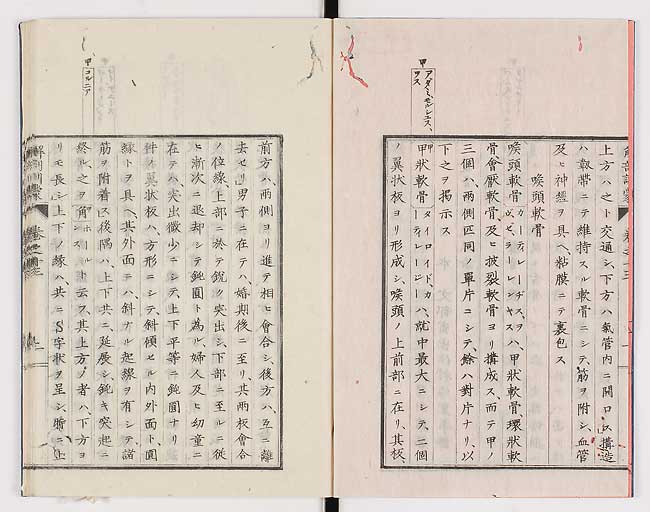 上方ハ之ト交通シ、下方ハ氣管内ニ開口ス、搆造
ハ靱帶ニテ維持スル軟骨ニシテ、筋ヲ附シ、血管
及ヒ神經ヲ具ヘ、粘膜ニテ裏包ス
喉頭軟骨
喉頭軟骨 カーティレーヂス、ヲヮ、ヅヒ、ラーレンキス ハ、甲狀軟骨、環狀軟
骨會厭軟骨、及ヒ披裂軟骨ヨリ搆成ス、而テ甲ノ
三個ハ、兩側匹同ノ單片ニシテ、餘ハ對片ナリ、以
下之ヲ掲示ス
甲狀軟骨 タイロイド、カーティレーヂー ハ、就中最大ニシテ、二個
ノ翼狀板ヨリ形成シ、喉頭ノ上前部ニ在リ、其板、
甲 アダミ、モルシニス、ヲス
前方ハ、兩側ヨリ進テ相ヒ會合シ、後方ハ、互ニ離
去セリ男子ニ在テハ婚期後ニ至リ、其兩板會合
ノ位線、上部ニ於テ銳ク突出シ、下部ニ至ルニ從
ヒ漸次ニ退却シテ鈍圓ト爲ル、婦人及ヒ幼童ニ
在テハ、突出微少ニシテ、上下平等ニ鈍圓ナリ
件ノ翼狀板ハ、方形ニシテ、斜傾セル内外面ト、圓
緣トヲ具ヘ、其外面ニハ、斜ナル起線ヲ有シテ諸
筋ヲ附着ス、後隅ハ、上下共ニ延展シ、鈍キ突起ニ
終ル、之ヲ角 ホールンス ト云フ、其上方ノ者ハ、下方ヨ
リモ長シ、上下ノ緣ハ、共ニS字狀ヲ呈シ、
甲 コルニア